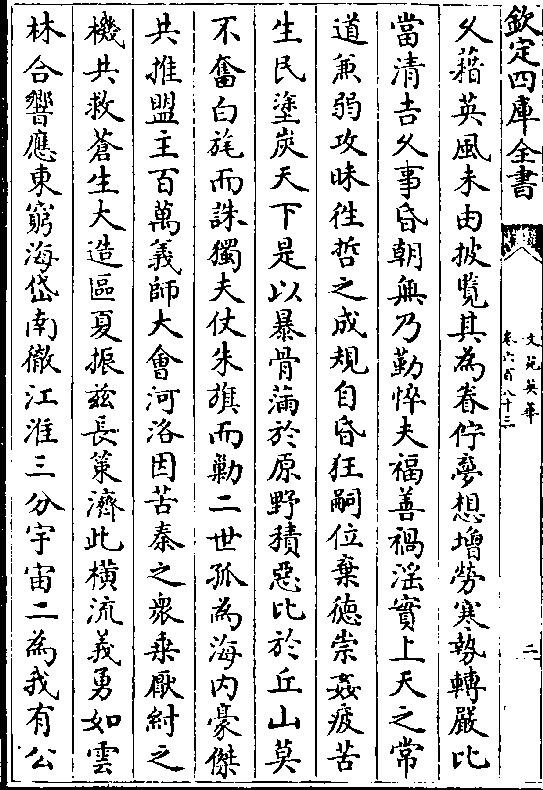 欽定四庫全書
文苑英華
卷六百八十三
二
久藉英風未由披覽其為眷佇夢想增勞寒埶轉嚴比
當清吉久事昏朝無乃勤悴夫福善禍淫實上天之常
道兼弱攻昧徃哲之成規自昏狂嗣位棄徳崇姦疲苦
生民塗炭天下是以暴骨滿於原野積惡比於丘山莫
不奮白旄而誅獨夫仗朱旗而勦二世孤為海内豪傑
共推盟主百萬義師大會河洛因苦秦之衆乗厭紂之
機共救蒼生大造區夏振兹長策濟此横流義勇如雲
林合響應東窮海岱南徹江淮三分宇宙二為我有公